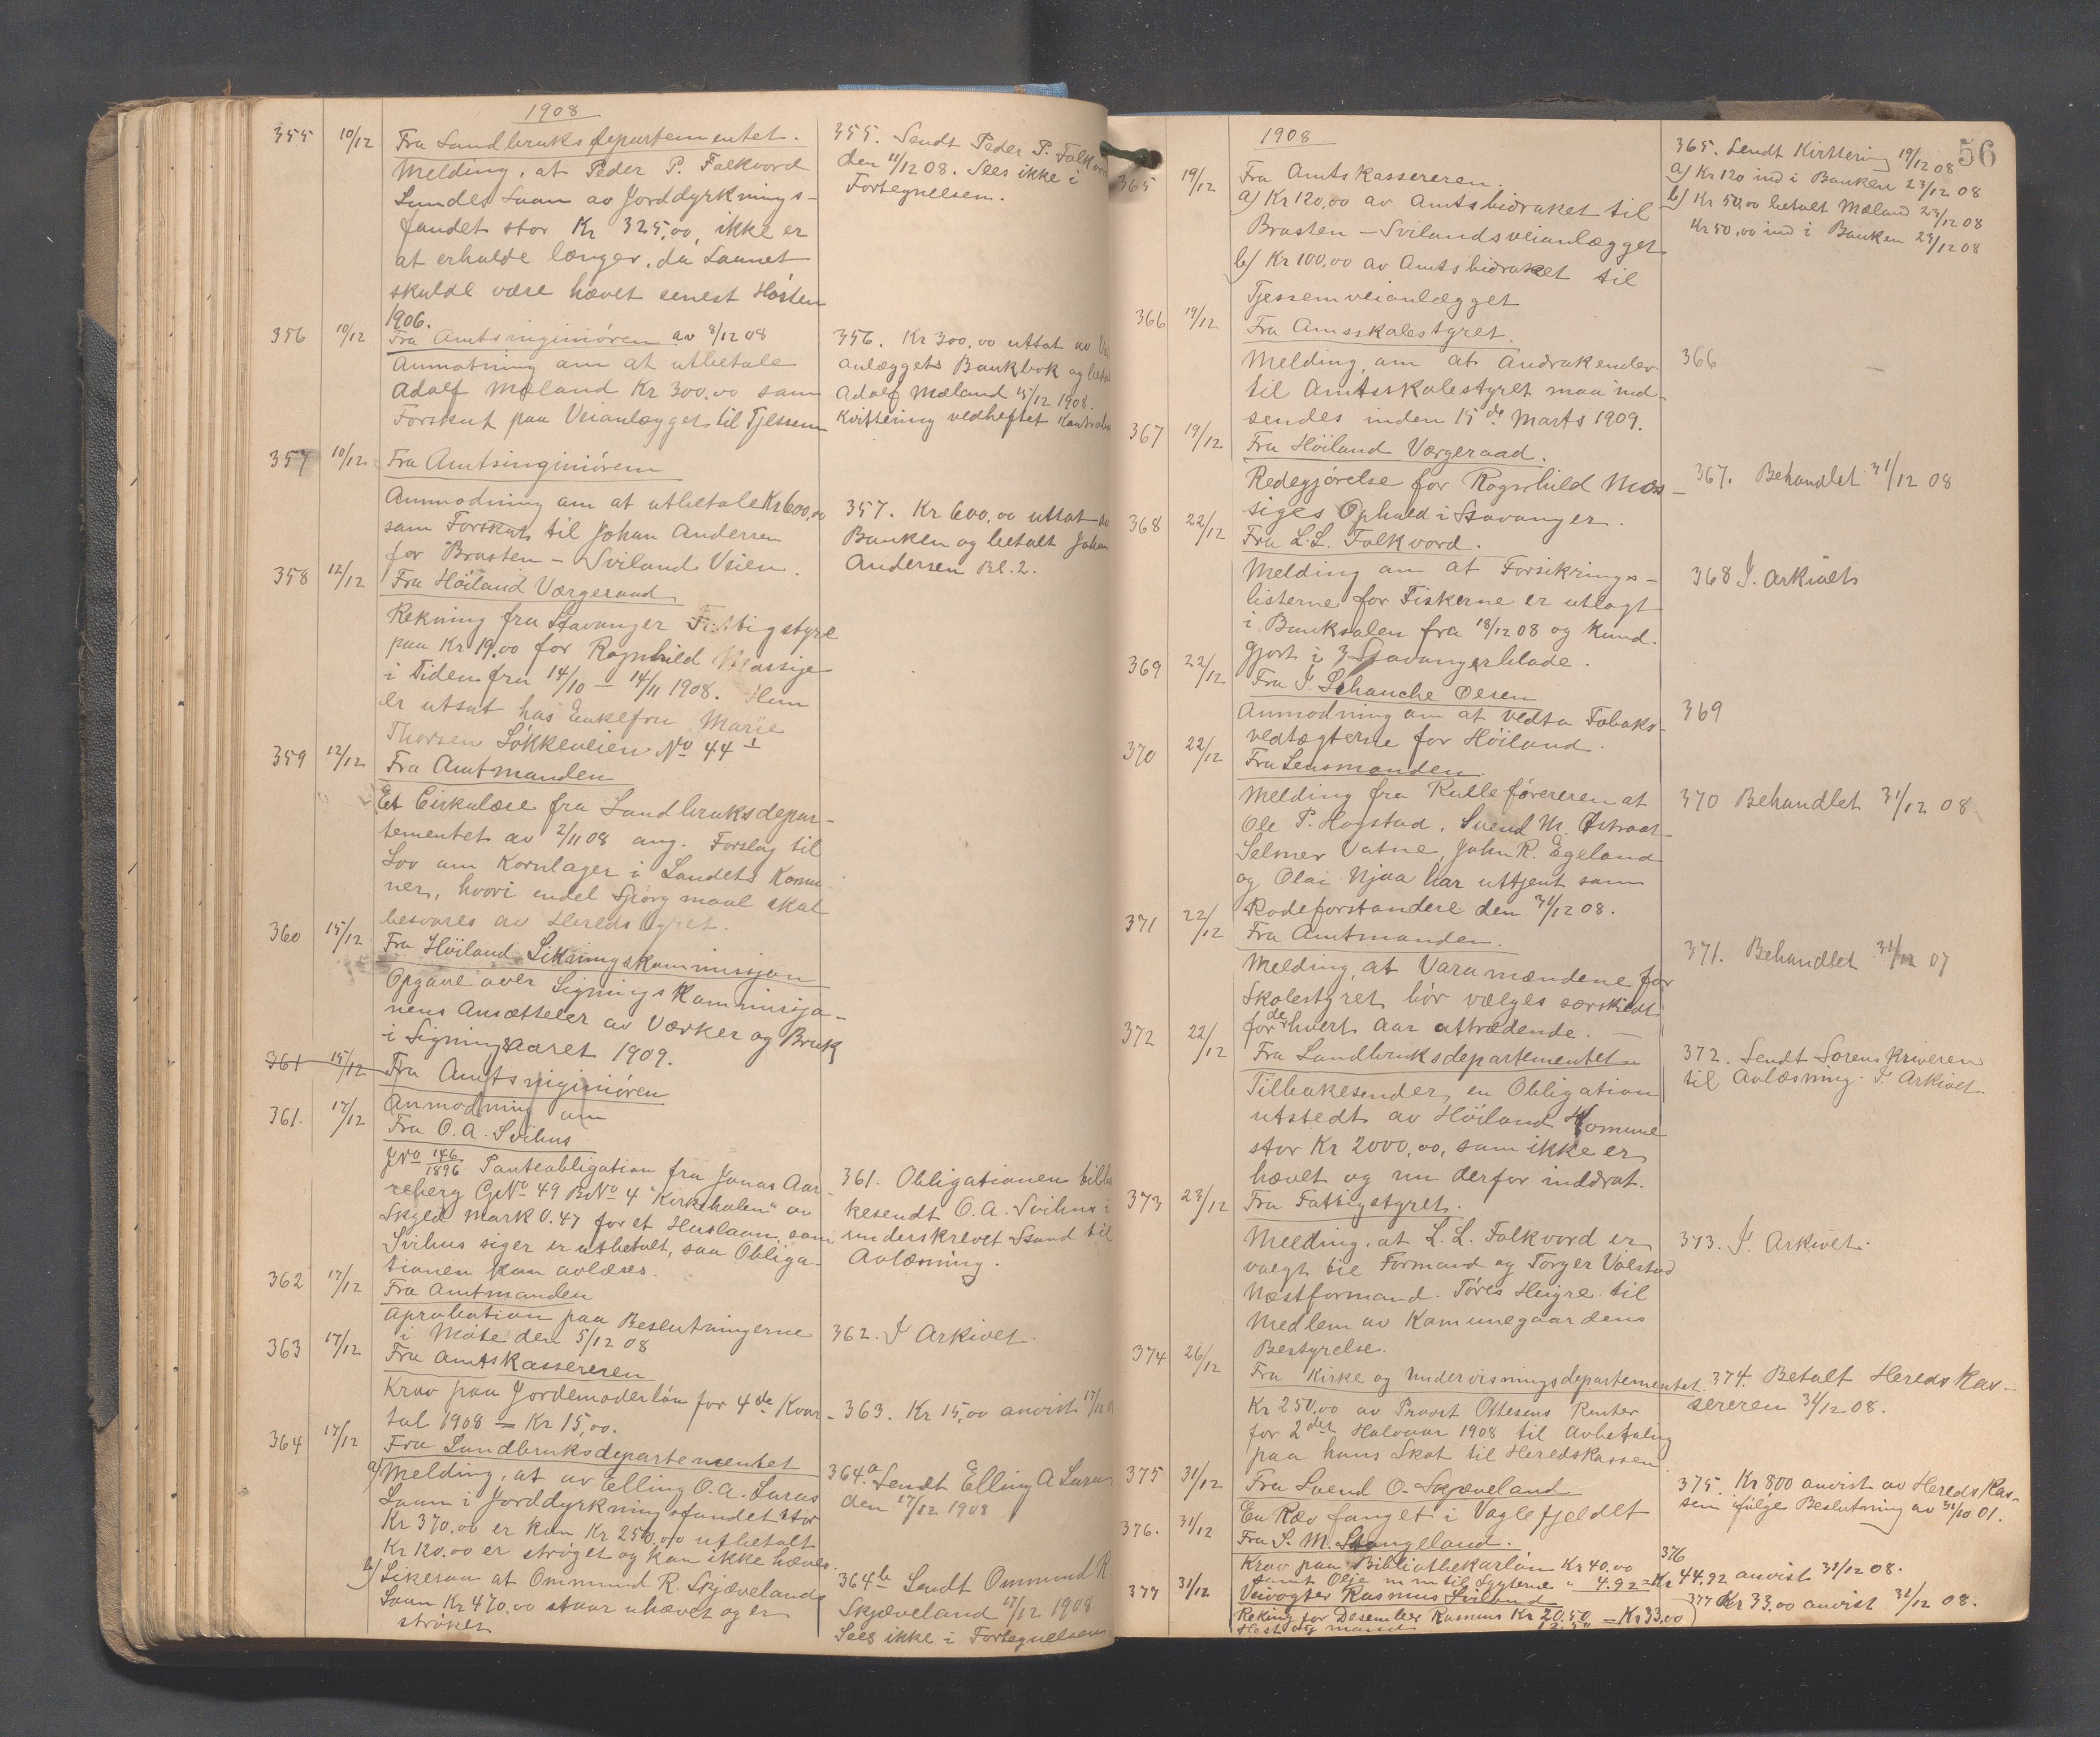 1908
355 10/12 Fra Landbruksdepartementet.
Melding, at Peder P. Folkvord
Lundes Laan av Jorddyrknings-
fondet stor Kr 325,00, ikke er
at erholde længer, da Laanet
skulde være hævet senest Høsten
1906.
355. Sendt Peder P. Folkvord
den 11/12 08. Sees ikke i
Fortegnelsen.
356 10/12 Fra Amtsingeniøren av 8/12 08
Anmodning om at utbetale
Adolf Mæland Kr 300.00 som
Forskut paa Veianlægget til Tjessem
356. Kr 300.00 uttat av
anlæggets Bankbok og
Adolf Mæland 15/12 1908.
Kvittering vedheftet
357 10/12 Fra Amtsinginiøren
Anmodning om at utbetale Kr 600,00
som Forskut til Johan Andersen
for Brasten - Sviland Veien.
357. Kr 600.00 uttat av
Banken og betalt Johan
Andersen Bl. 2.
358 12/12 Fra Høiland Værgeraad
Rekning fra Stavanger Fattigstyre
paa Kr 19.00 for Ragnhild Massige
i Tiden fra 14/10 - 14/11 1908. Hun
er utsat hos Enkefru Marie
Thorsen Løkkeveien No 44 I
359 12/12 Fra Amtmanden
Et Cirkulære fra Landbruksdepar-
tementet av 2/11 08 ang. Forslag til
Lov om Kornlager i Landets Komu
ner, hvori endel Spørgmaal skal
besvares av Heredstyret.
360 15/12 Fra Høiland Likningskommissjon
Opgave over Ligningskommissjo-
nens Ansættelser av Værker og Bruk
i Ligningsaaret 1909.
361 15/12 Fra Amtsinginiøren
Anmodning om
361. 17/12 Fra O. A. Svihus
JNo 146/1896 Panteobligation fra Jonas Aar-
reberg GNo 49 BNo 4 "Kirkeholen" av
Skyld Mark 0.47 for et Huslaan, som
Svihus siger er utbetalt, saa Obliga-
tionen kan avlæses.
361. Obligationen tilba
kesendt O. A. Svihus i
underskrevet Stand til
Avlæsning.
362 17/12 Fra Amtmanden
Aprobation paa Beslutningerne
i Møte den 5/12 08
362. I Arkivet.
363 17/12 Fra Amtskassereren
Krav paa Jordemoderløn for 4de Kvar-
tal 1908 = Kr 15,00.
363. Kr 15,00 anvist 17/12
364 17/12 Fra Landbruksdepartementet
a) Melding, at av Elling O. A. Luras
Laan i Jorddyrkningsfondet stor
Kr 370.00 er kun Kr 250.00 utbetalt
Kr 120.00 er strøget og kan ikke hæves.
b) Likesaa at Ommund R. Skjævelands
Laan Kr 470.00 staar uhævet og er
strøket
364.a Sendt Elling A Luras
den 17/12 1908
364b Sendt Ommund R.
Skjæveland 17/12 1908
Sees ikke i Fortegnelsen
56
1908
365 19/12 Fra Amtskassereren.
a) Kr 120,00 av Amtsbidraket til
Brasten - Svilandsveianlægget
b) Kr 100.00 av Amtsbidraket til
Tjessemveianlægget
365. Sendt Kvittering 19/12 08
a) Kr 120 ind i Banken 23/12 08
b) Kr 50,00 betalt Mæland 23/12 08
Kr 50,00 ind i Banken 23/12 08
366 19/12 Fra Amsskolestyret.
Melding om at Andrakender
til Amtsskolestyret maa ind-
sendes inden 15de Marts 1909.
366
367 19/12 Fra Høiland Værgeraad.
Redegjørelse for Ragnhild Mas-
siges Ophold i Stavanger.
367. Behandlet 31/12 08
368 22/12 Fra L. L. Folkvord.
Melding om at Forsikrings-
listerne for Fiskerne er utlagt
i Banksalen fra 18/12 08 og kund-
gjort i 3 Stavangerblade.
368 I. Arkivet
369 22/12 Fra I. Schanche Olsen
Anmodning om at vedta Tobaks-
vedtægterne for Høiland.
369
370 22/12 Fra Lensmanden.
Melding fra Rulleføreren at
Ole P. Hogstad, Svend M. Østraat
Selmer Vatne, John R. Egeland
og Olai Njaa har uttjent som
Rodeforstandere den 31/12 08.
370 Behandlet 31/12 08
371 22/12 Fra Amtmanden.
Melding, at Varamændene for
Skolestyret bør vælges særskilt
for de hvert Aar uttrædende.
371. Behandlet 31/12 07
372 22/12 Fra Landbruksdepartementet
Tilbakesender en Obligation
utstedt av Høiland Komune
stor Kr 2000,00, som ikke er
hævet og nu derfor inddrat.
372. Sendt Sorenskriveren
til Avlæsning. I. Arkivet.
373 23/12 Fra Fattigstyret.
Melding, at L. L. Folkvord er
valgt til Formand og Torger Válstad
Næstformand. Tóres Heigre til
Medlem av Komunegaardens
Bestyrelse.
373. I. Arkivet.
374 26/12 Fra Kirke og Undervisningsdepartementet.
Kr 250,00 av Provst Ottesens Renter
for 2det Halvaar 1908 til Avbetaling
paa hans Skat til Heredskassen
374. Betalt Heredskas-
sereren 31/12 08.
375 31/12 Fra Svend O. Skjæveland
En Ræv fanget i Voglefjeldet
375. Kr 8,00 anvist av Heredskas-
sen ifølge Beslutning av 31/10 01.
376. 31/12 Fra S. M. Stangeland.
Krav paa Bibliothekarløn Kr 40,00
samt Olje m m til Lygterne " 4.92
376
= Kr 44,92 anvist 31/12 08.
377 31/12 Veivogter Rasmus Sviland
Rekning for Desember Rasmus Kr 20.50 = Kr 33,00
Hest og mand 12.50
377 Kr 33,00 anvist 31/12 08.